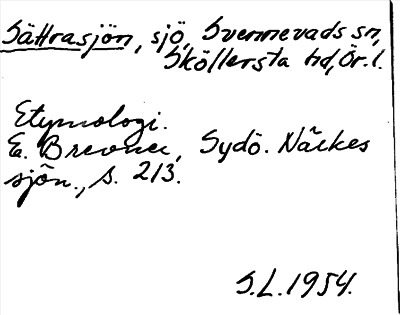 Sättrasjön, sjö, Svennevads sn,
Sköllersta hd, Ör. l.
Etymologi.
E. Brevner, Sydö. Närkes
sjön., s. 213.
S.L. 1954.